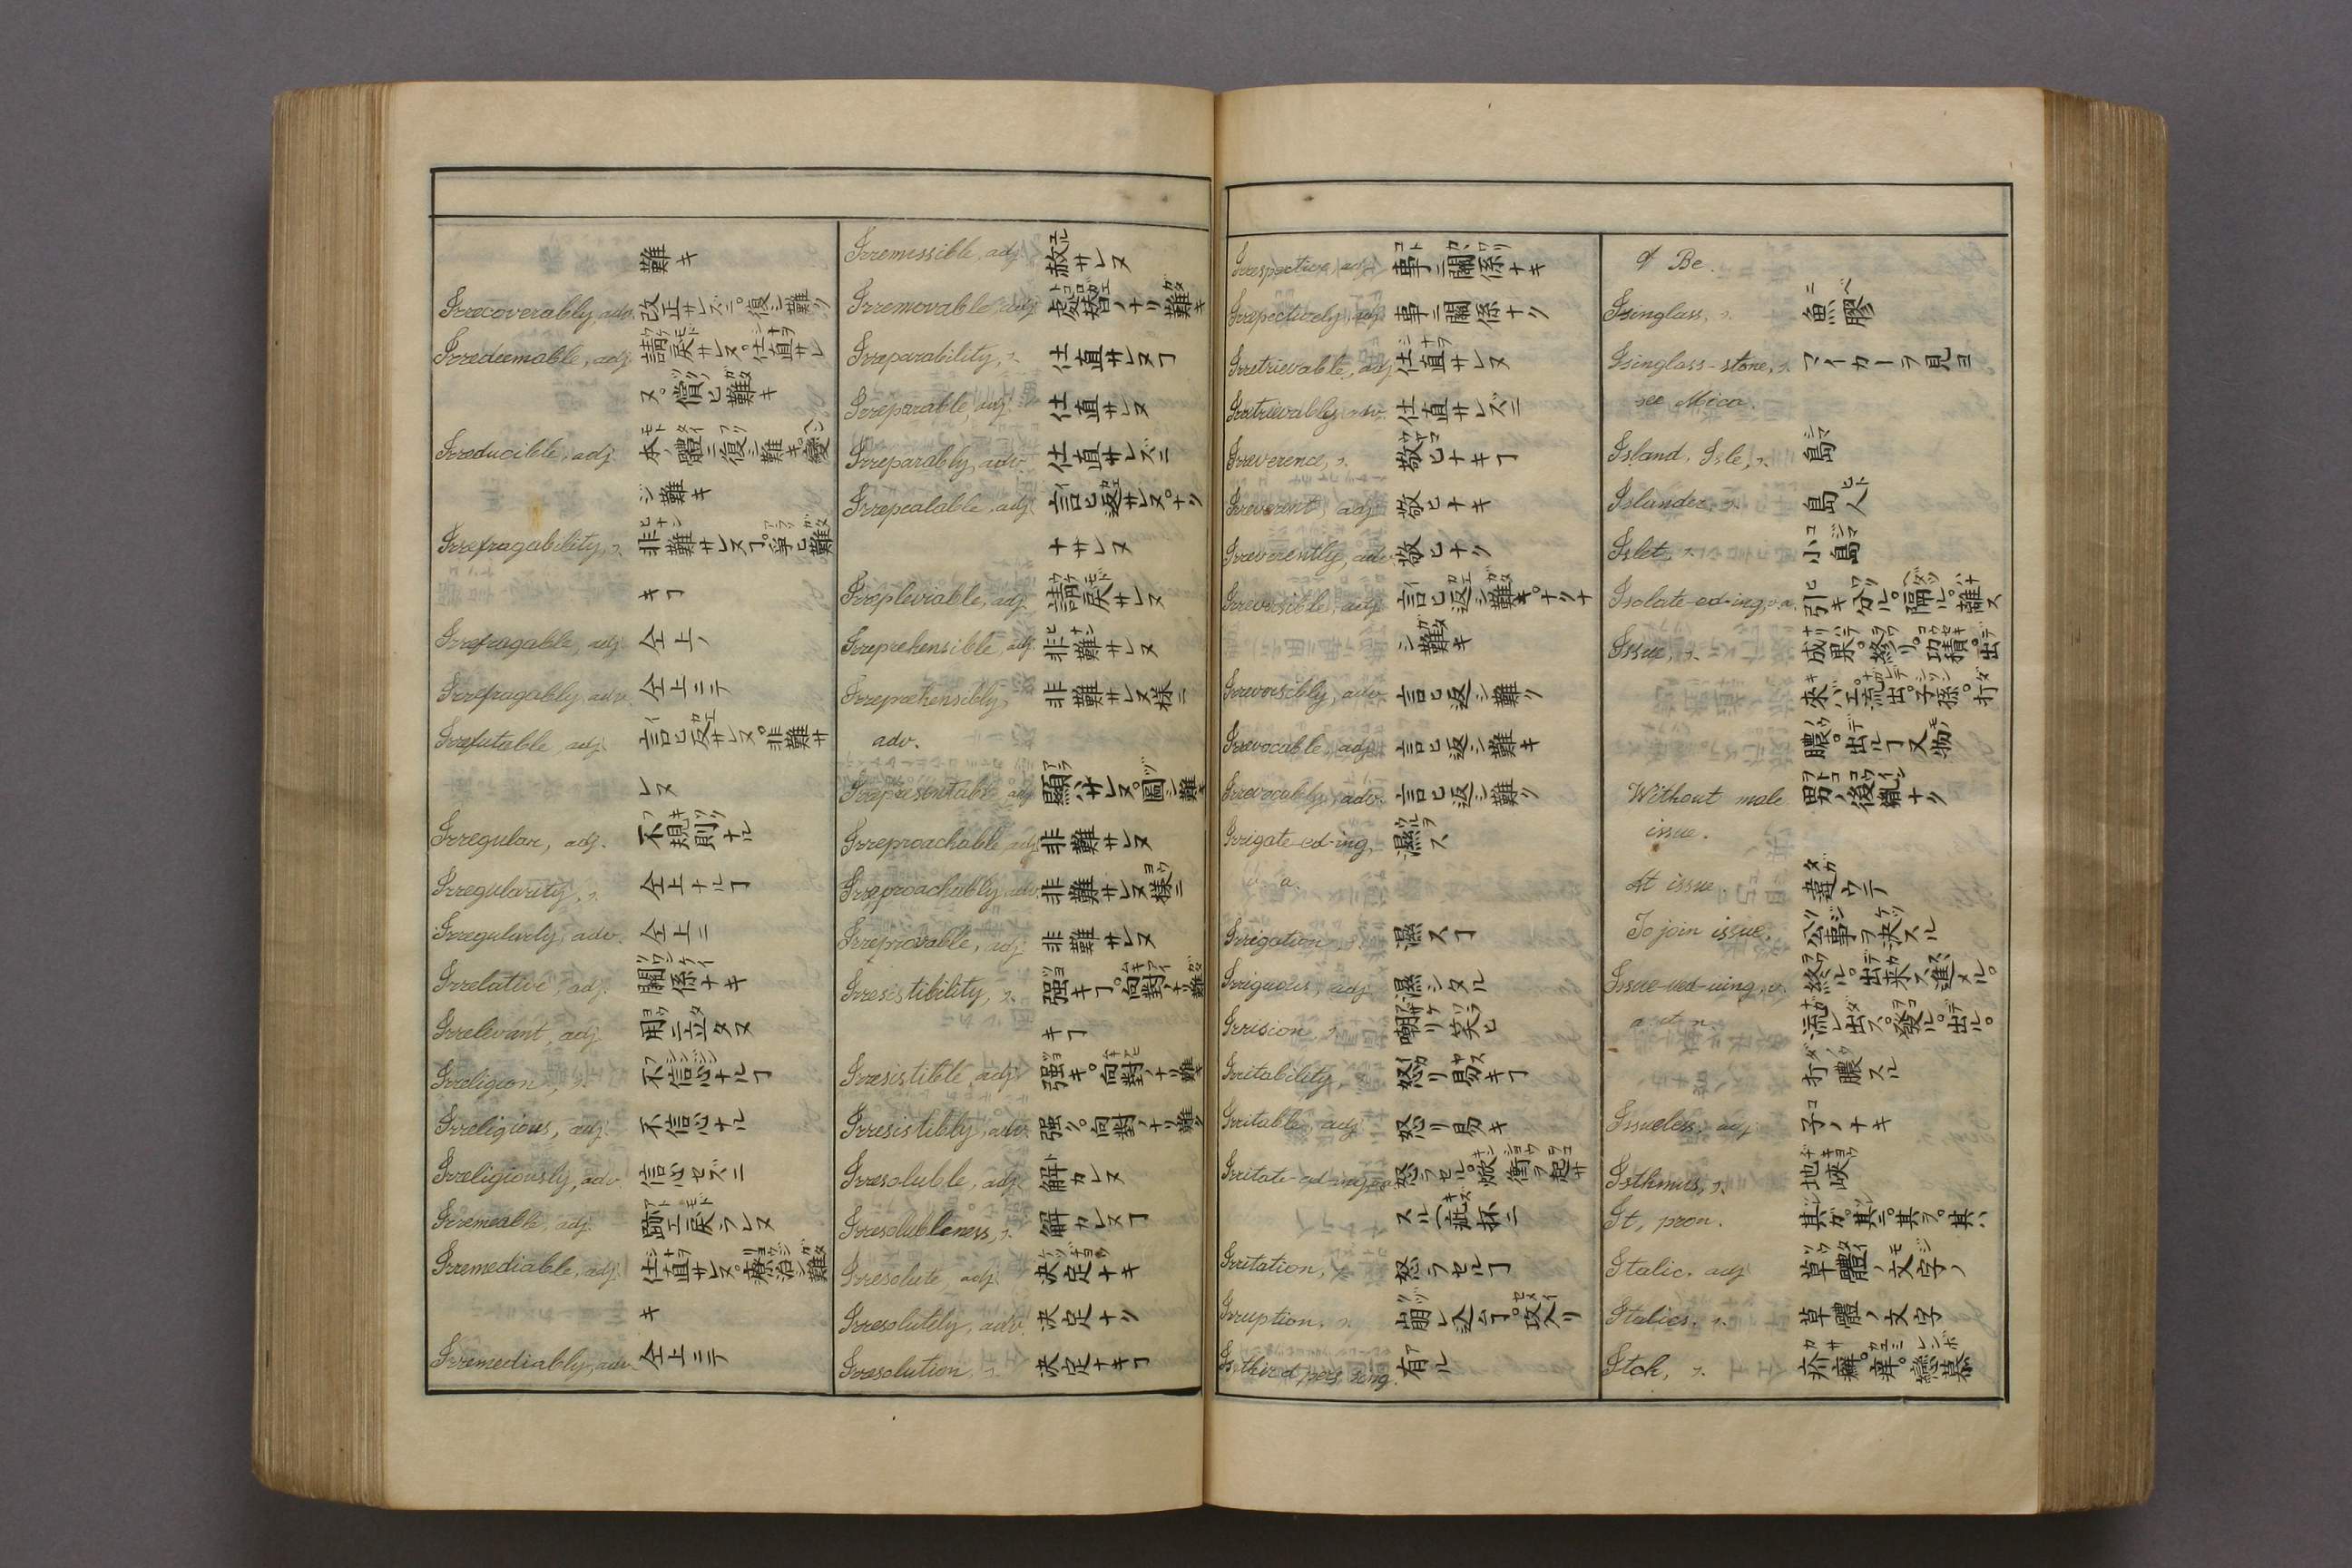 難キ
Irrecoverably, adv. 改正サレズニ。復シ難ク
Irredeemable, adj. 請戻サレヌ。仕直サレ
ヌ。償ヒ難キ
Irreducible, adj. 本ノ體ニ復シ難キ。變
ジ難キ
Irrefragability, s. 非難サレヌヿ。爭ヒ難
キヿ
Irrefragable, adj. 仝上ノ
Irrefragably, adv. 仝上ニテ
Irrefutable, adj. 言ヒ反サレヌ。非難サ
レヌ
Irregular, adj. 不規則ナル
Irregularity, s. 仝上ナルヿ
Irregularly, adv. 仝上ニ
Irrelative, adj. 關係ナキ
Irrelevant, adj. 用ニ立タヌ
Irreligion, s. 不信心ナルヿ
Irreligious, adj. 不信心ナル
Irreligiously, adv. 信心セズニ
Irremeable, adj. 跡エ戻ラレヌ
Irremediable, adj. 仕直サレヌ。療治シ難
キ
Irremediably, adv. 仝上ニテ
Irremissible, adj. 赦サレヌ
Irremovable, adj. 處替ノナリ難キ
Irreparability, s. 仕直サレヌヿ
Irreparable, adj. 仕直サレヌ
Irreparably, adv. 仕直サレズニ
Irrepealable, adj. 言ヒ返サレヌ。ナク
ナサレヌ
Irrepleviable, adj. 請戻サレヌ
Irreprehensible, adj. 非難サレヌ
Irreprehensibly, 非難サレヌ様ニ
adv.
Irrepresentable, adj. 顯ハサレヌ。圖シ難キ
Irreproachable, adj. 非難サレヌ
Irreproachably, adv. 非難サレヌ様ニ
Irreprovable, adj. 非難サレヌ
Irresistibility, s. 强キヿ。向對ノナリ難
キヿ
Irresistible, adj. 强キ。向對ノナリ難キ
Irresistibly, adv. 强ク。向對ノナリ難ク
Irresoluble, adj. 解カレヌ
Irresolubleness, s. 解カレヌヿ
Irresolute, adj. 決定ナキ
Irresolutely, adv. 決定ナク
Irresolution, s. 決定ナキヿ
Irrespective, adj. 事ニ關係ナキ
Irrepectively, adj. 事ニ關係ナク
Irretrievable, adj. 仕直サレヌ
Irretrievably, adv. 仕直サレズニ
Irreverence, s. 敬ヒナキヿ
Irreverent, adj. 敬ヒナキ
Irreverently, adv. 敬ヒナク
Irreversible, adj. 言ヒ返シ難キ。ナクナ
シ難キ
Irreversibly, adv. 言ヒ返シ難ク
Irrevocable, adj. 言ヒ返シ難キ
Irrevocably, adv. 言ヒ返シ難ク
Irrigate-ed-ing, 濕ス
v. a.
Irrigation, s. 濕スヿ
Irriguous, adj. 濕シタル
Irrision, s. 嘲リ笑ヒ
Irritability, 怒リ易キヿ
Irritable, adj. 怒リ易キ
Irritate-ed-ing, 怒ラセル。焮衝ヲ起サ
スル(疵抔ニ
Irritation, 怒ラセルヿ
Irruption, s. 崩レ込ムヿ。攻入リ
Is, third pers. sing. 有ル
of Be.
Isinglass, s. 魚膠
Isinglass-stone, s. マイカーヲ見ヨ
see Mica.
Island, Isle, s. 島
Islander, s. 島人
Islet, s. 小島
Isolate-ed-ing, v.a. 引キ分ル。隔ル。離ス
Issue, s. 成果。終リ。功積。出
來バエ。流出。子孫。打
膿。出ルヿ又物
Without male 男ノ後胤ナク
issue.
At issue. 違ウテ
To join issue. 公事ヲ決スル
Issue-ued-uing, v. 終ル。出来ス。進メル。
a. et n. 流レ出ス。發ル。出ル。
打膿スル
Issueless, adj. 子ノナキ
Isthmus, s. 地峽
It, pron. 其ガ。其ニ。其ヲ。其ハ
Italic, adj. 草體ノ文字ノ
Italics, s. 草體ノ文字
Itch, s. 疥癬。痒。戀慕